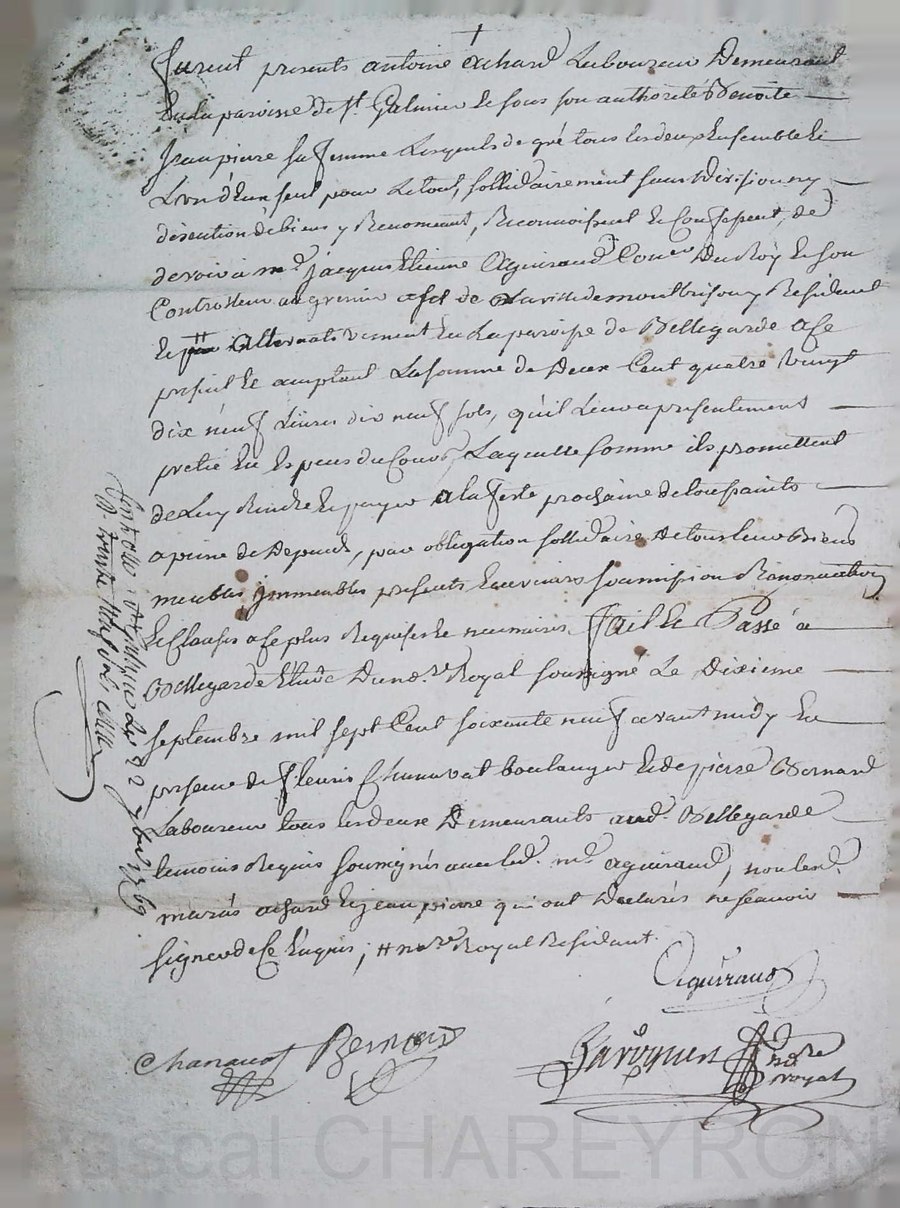 furent presents antoine achard Laboureur Demeurant
En La paroisse de St. Galmier Et sous son authorité Benoite
Jeanpierre sa femme Lesquels de gré tous Lesdeux Ensemble Et
L'un d'Eux seul pour Letout, sollidairement sans Division ny
discution de biens y Renonceant, Reconnoissent Et Confessent, de
devoir à mr. jacques Etienne Aguiraud Coner Du Roy Et son
Controlleur au grenier a sel de La ville de montbrison y Resident
Et alternativement En La paroisse de Bellegarde a Ce
present Et acceptant La somme de Deux Cent quatre vingt
dix neuf Livres dix neuf sols, qu'il Leur a presentement
preté En Especes du Cours, Laquelle somme ils promettent
de Luy Rendre Et payer a la feste prochaine de toussaints
a peine de Depends, par obligation sollidaire de tous Leurs Biens
meubles immeubles presents Et avenirs soumission Renonciation
Et Clauses a Ce plus Requises Et necessaires fait Et Passé a
Bellegarde Etude Du nore. Royal soussigné Le Dixieme
septembre mil sept Cent soixante neuf avant midy En
presence de fleuris Chanavat boulanger Et de pierre Bernard
Laboureur tous Lesdeux Demeurants aud. Bellegarde
temoins Requis soussignés avec led. mr. aguiraud, non lesd.
mariés achard Et jeanpierre qui ont Declarés ne sçavoir
signer de Ce Enquis; # nore Royal Resident.
Aguiraud
Chanavat Bernard
nore
royal
7bre 1769